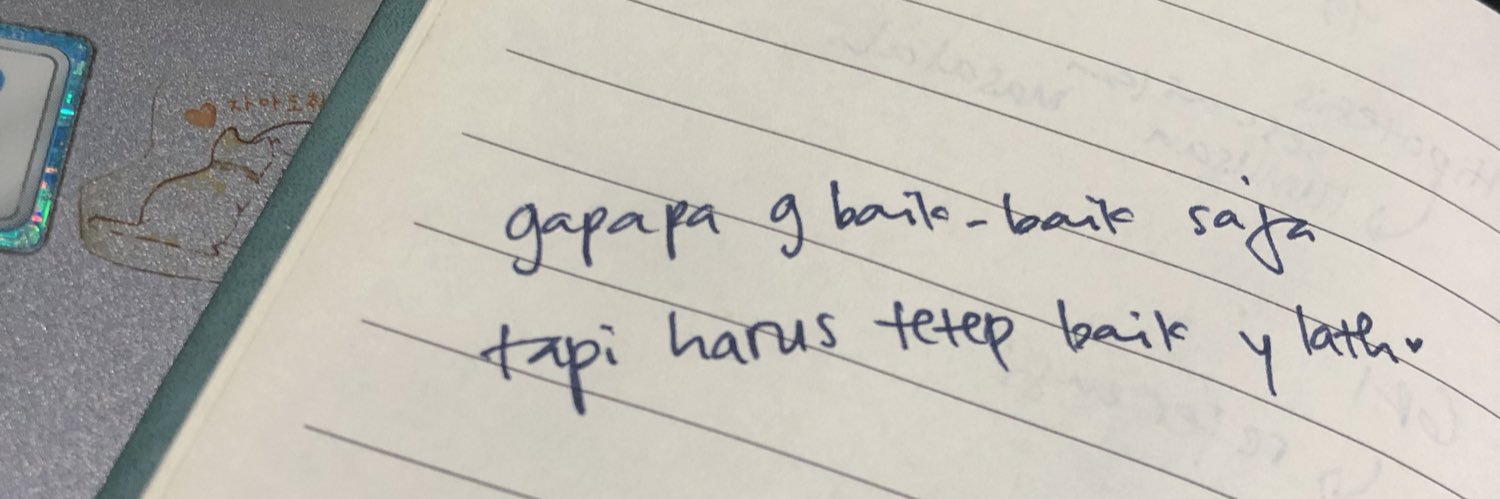 자아도취
gapapa g baik-baik saja
tapi harus tetep baik y lath